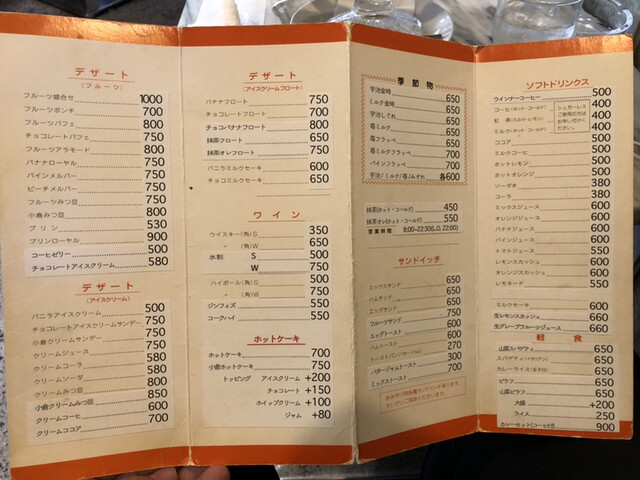 デザート
(フルーツ)
フルーツ盛合せ 1000
フルーツポンチ 700
フルーツパフェ 800
チョコレートパフェ 750
フルーツアラモード 800
バナナローヤル 750
パインメルバー 750
ピーチメルバー 750
フルーツみつ豆 750
小倉みつ豆 800
プリン 530
プリンローヤル 900
コーヒゼリー 500
チョコレートアイスクリーム 580
デザート
(アイスクリーム)
バニラアイスクリーム 500
チョコレートアイスクリームサンデー 750
小倉クリームサンデー 750
クリームジュース 750
クリームコーラ 580
クリームソーダ 580
クリームみつ豆 800
小倉クリームみつ豆 850
クリームコーヒ 600
クリームココア 700
デザート
(アイスクリームフロート)
バナナフロート 750
チョコレートフロート 700
チョコバナナフロート 800
抹茶フロート 650
抹茶オレフロート 750
バニラミルクセーキ 600
チョコミルクセーキ 650
ワイン
ウイスキー(角)S 350
〃 (角)W 650
水割 S 500
W 750
ハイボール(角)S 500
〃 (角)W 750
ジンフィズ 550
コークハイ 550
ホットケーキ
ホットケーキ 700
小倉ホットケーキ 750
トッピング アイスクリーム +200
チョコレート +150
ホイップクリーム +100
ジャム +80
季節物
宇治金時 650
ミルク金時 650
宇治しぐれ 650
苺ミルク 650
苺フラッペ 650
苺ミルクフラッペ 700
パインフラッペ 700
宇治/ミルク/苺/みぞれ 各600
抹茶(ホット・コールド) 450
抹茶オレ(ホット・コールド) 550
営業時間 8:00~22:30(L.O. 22:00)
サンドイッチ
ミックスサンド 650
ハムサンド 650
エッグサンド 650
フルーツサンド 750
エッグトースト 600
ハムトースト 600
トーストパン 270
バタージャムトースト 300
ミックストースト 700
ソフトドリンクス
ウインナーコーヒー 500
コーヒ(ホット・コールド) 400
紅茶(ミルク・レモン) 400
ミルク(ホット・コールド) 400
シュガーレス
ご使用の方は
お申し付け
ください。
ココア 500
ミルクコーヒ 500
ホットレモン 500
ホットオレンジ 500
ソーダ水 380
コーラ 380
ミックスジュース 600
オレンジジュース 600
バナナジュース 600
パインジュース 600
トマトジュース 550
レモンスカッシュ 600
オレンジスカッシュ 600
レモネード 550
ミルクセーキ 600
生レモンスカッシュ 660
生グレープフルーツジュース 660
軽食
山菜スパゲティ 650
スパゲティ(イタリアン) 650
カレーライス(玉子付) 650
ピラフ 650
山菜ピラフ 650
大盛 +200
ライス 250
カレーセット(コーヒ付) 900